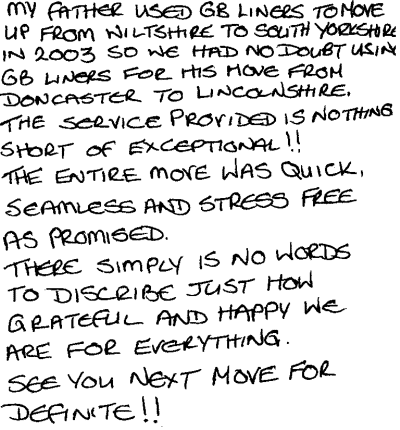 MY FATHER USED GB LINERS TO MOVE
UP FROM WILTSHIRE TO SOUTH YORKSHIRE
IN 2003 SO WE HAD NO DOUBT USING
GB LINERS FOR HIS MOVE FROM
DONCASTER TO LINCOLNSHIRE.
THE SERVICE PROVIDED IS NOTHING
SHORT OF EXCEPTIONAL!!
THE ENTIRE MOVE WAS QUICK,
SEAMLESS AND STRESS FREE
AS PROMISED.
THERE SIMPLY IS NO WORDS
TO DISCRIBE JUST HOW
GRATEFUL AND HAPPY WE
ARE FOR EVERYTHING.
SEE YOU NEXT MOVE FOR
DEFINITE!!